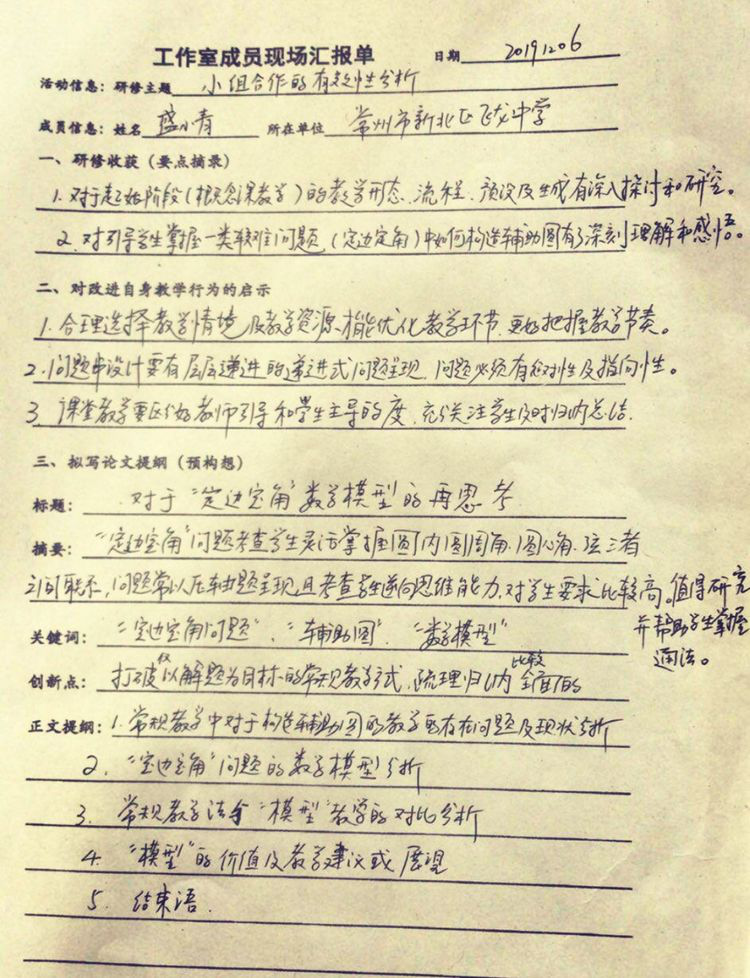 工作室成员现场汇报单 日期 20191206
活动信息：研修主题 小组合作的有效性分析
成员信息：姓名 盛小青 所在单位 常州市新北区飞龙中学
一、研修收获（要点摘录）
1. 对于起始阶段（概念课教学）的教学形态、流程、预设及生成有深入探讨和研究。
2. 对引导学生掌握一类较难问题（定边定角）中如何构造辅助圆有了深刻理解和感悟。
二、对改进自身教学行为的启示
1. 合理选择教学情境及教学资源，才能优化教学环节，更好把握教学节奏。
2. 问题串设计要有层层递进的递进式问题呈现，问题必须有针对性及指向性。
3. 课堂教学要区分好教师引导和学生主导的度，充分关注学生及时归纳总结.
三、拟写论文提纲（预构想）
标题： 对于“定边定角”数学模型的再思考
摘要： “定边定角”问题考查学生灵活掌握圆内圆周角、圆心角、弦三者
之间联系，问题常以压轴题呈现，且考查学生逆向思维能力，对学生要求比较高。值得研究
并帮助学生掌握
通法。
关键词： “定边定角问题”、“辅助圆”、“数学模型”
创新点： 打破仅以解题为目标的常规教学方式，梳理归纳比较全面的
正文提纲：1. 常规教学中对于构造辅助圆的教学存在问题及现状分析
2. “定边定角”问题的数学模型分析
3. 常规教学法与“模型”教学的对比分析
4. “模型”的价值及教学建议或展望
5. 结束语.